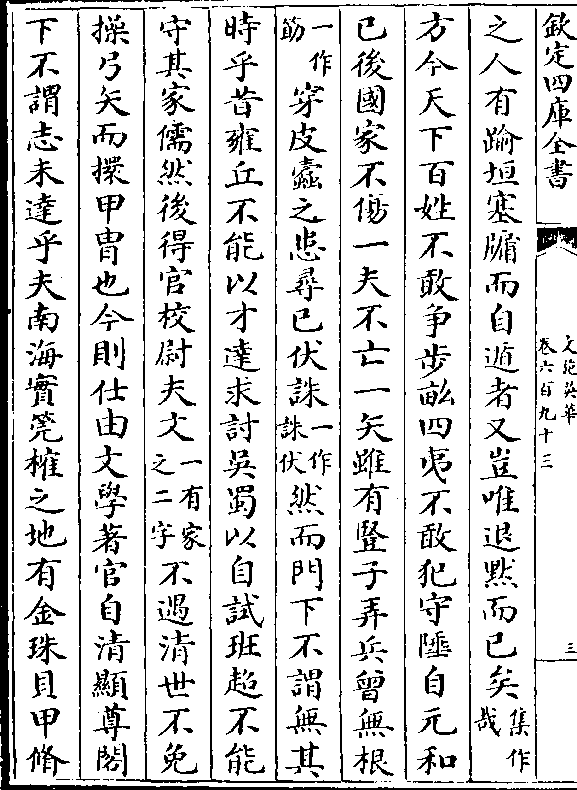 欽定四庫全書
文苑英華
卷六百九十三
三
之人有踰垣塞牖而自遁者又豈唯退黙而已矣集作哉
方今天下百姓不敢争步畝四夷不敢犯守陲自元和
已後國家不傷一夫不亡一矢雖有豎子弄兵曾無根
一作筋穿皮蠧之患尋已伏誅一作誅伏然而門下不謂無其
時乎昔雍丘不能以才達求討吳蜀以自試班超不能
守其家儒然後得官校尉夫文一有家之二字不遇清世不免
操弓矢而擐甲胄也今則仕由文學著官自清顯尊閣
下不謂志未達乎夫南海實筦榷之地有金珠貝甲脩